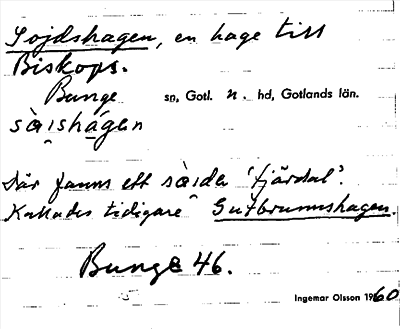 Sojdshagen, en hage till
Biskops.
Bunge sn, Gotl. n. hd, Gotlands län.
sàishágen
Där fanns ett sàide 'tjärdal'.
Kallades tidigare Gutbrunnshagen.
Bunge 46.
Ingemar Olsson 1960